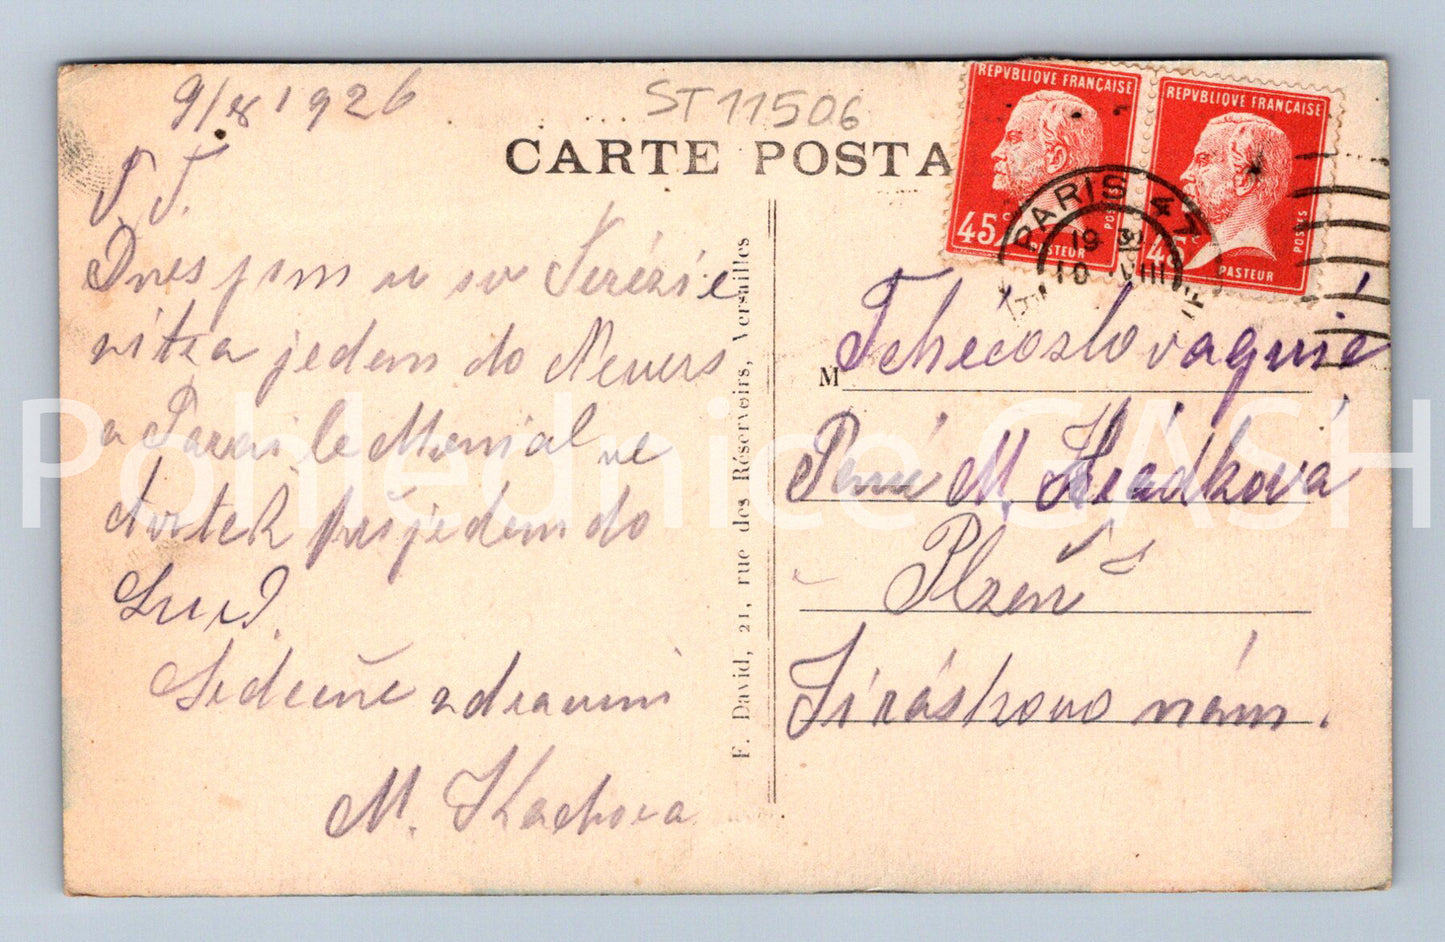 9/8 1926
ST11506
CARTE POSTA
REPVBLIQVE FRANÇAISE
45c
POSTES
PASTEUR
REPVBLIQVE FRANÇAISE
45c
POSTES
PASTEUR
PARIS 47
19 30
10 VIII
T. T.
Dnes jsem u sv Terézie
zitra jedem do Nevers
a Parai le Monial ve
čtvrtek přijedem do
Lurd.
Srdečně zdraví
M. Kachova
F. David, 21, rue des Réservoirs, Versailles
M
Tchécoslovaguié
Paní M. Hrádková
Plzeň
Jiráskovo nám.
Pohlednice GASH